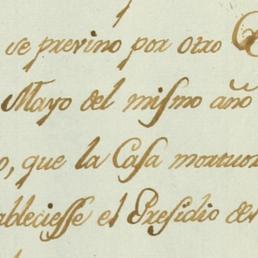 se previno por otro
Mayo del mismo año
o, que la Casa mortuor
ableciesse el Presidio de